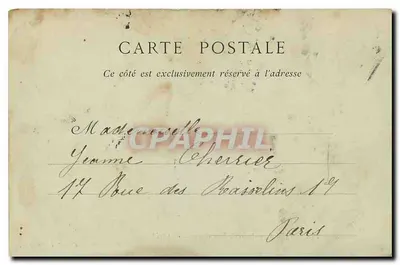 CARTE POSTALE
Ce côté est exclusivement réservé à l'adresse
Mademoiselle
Jeanne Cherrier
17 Rue des Rasselins 19
Paris
CARTPHIL